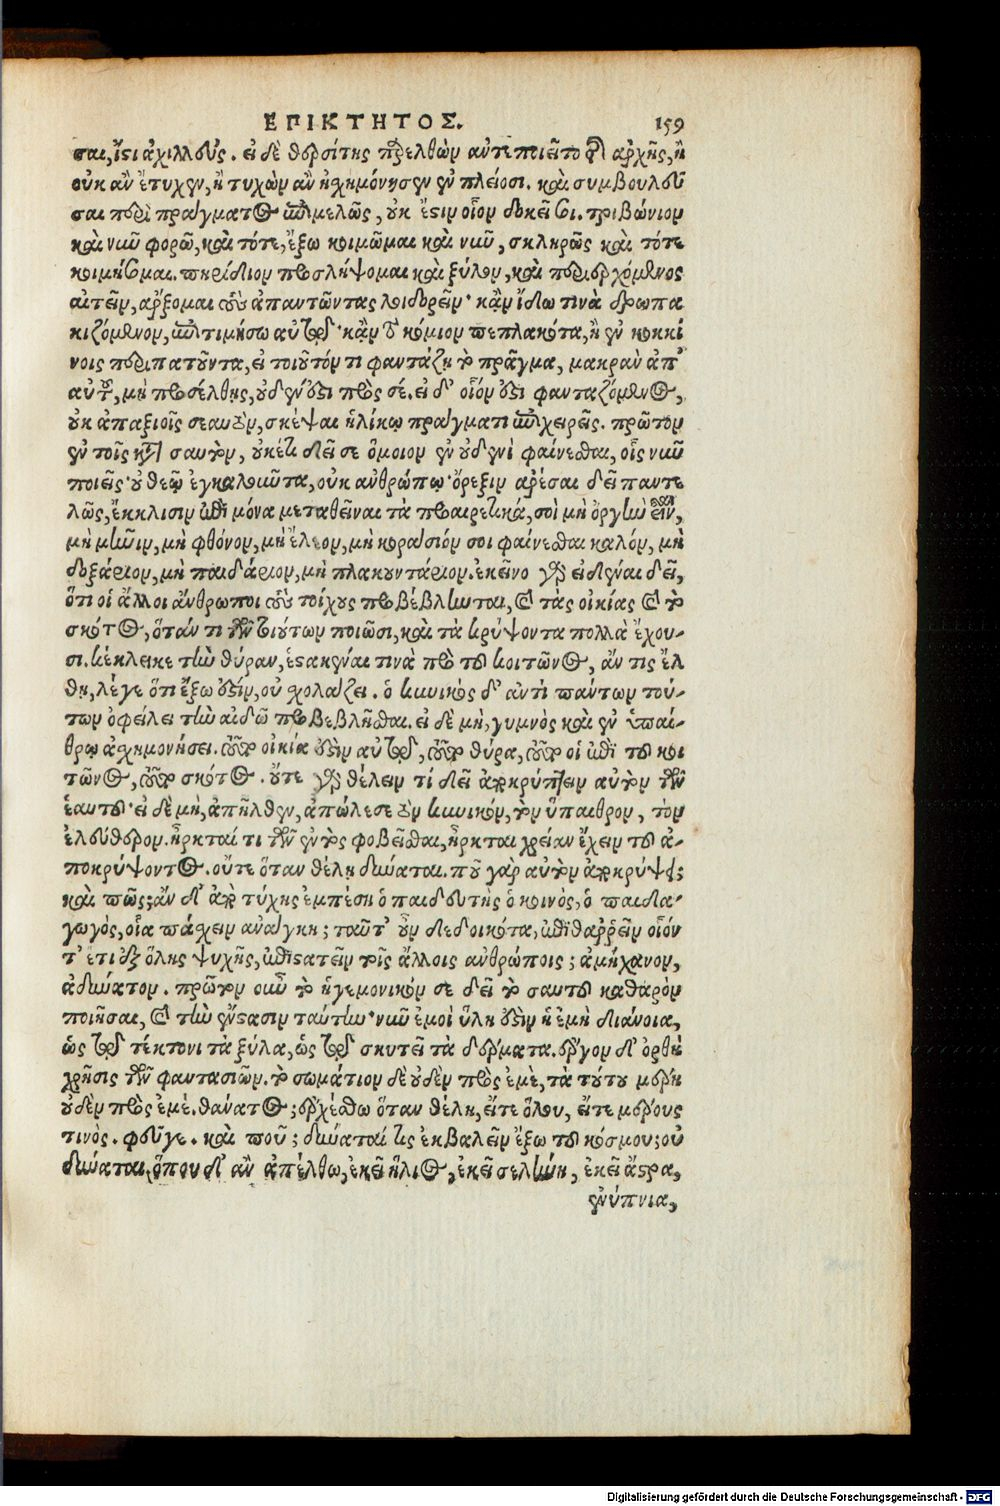 ΕΠΙΚΤΗΤΟΣ. 159
σαι, ἴσι ἀχιλλεύς. εἰ δὲ θερσίτης προελθὼν αὐτιποιεῖτο τῆς ἀρχῆς, ἢ
οὐκ ἂν ἔτυχεν, ἢ τυχὼν ἂν ἠσχημόνησεν ἐν πλείοσι. καὶ συμβουλεῦ
σαι περὶ πράγματος ἐπιμελῶς, οὐκ ἔστιν οἷον δοκεῖ σοι. τριβώνιον
καὶ νῦν φορῶ, καὶ τότε, ἔξω κοιμῶμαι καὶ νῦν, σκληρῶς καὶ τότε
κοιμήσομαι. πηρίδιον προσλήψομαι καὶ ξύλον, καὶ περιερχόμενος
αἰτεῖν, ἄρξομαι τοὺς ἀπαντῶντας λοιδορεῖν· κἂν ἴδω τινὰ δρωπα
κιζόμενον, ἐπιτιμήσω αὐτῷ· κἂν τὸ κόμιον πεπλακότα, ἢ ἐν κοκκί
νοις περιπατοῦντα, εἰ τοιοῦτόν τι φαντάζῃ τὸ πρᾶγμα, μακρὰν ἀπ’
αὐτοῦ, μὴ προσέλθῃς, οὐδέν ἐστι πρὸς σέ. εἰ δ’ οἷόν ἐστι φανταζόμενος,
οὐκ ἀπαξιοῖς σεαυτόν, σκέψαι ἡλίκῳ πράγματι ἐπιχειρεῖς. πρῶτον
ἐν τοῖς κατὰ σαυτόν, οὐκέτι δεῖ σε ὅμοιον ἐν οὐδενὶ φαίνεσθαι, οἷς νῦν
ποιεῖς· οὐ θεῷ ἐγκαλοῦντα, οὐκ ἀνθρώπῳ· ὄρεξιν ἀρέσαι δεῖ παντε
λῶς, ἔκκλισιν ἐπὶ μόνα μεταθεῖναι τὰ προαιρετικά, σοὶ μὴ ὀργὴν εἶναι,
μὴ μῆνιν, μὴ φθόνον, μὴ ἔλεον, μὴ κοράσιόν σοι φαίνεσθαι καλόν, μὴ
δοξάριον, μὴ παιδάριον, μὴ πλακουντάριον. ἐκεῖνο γὰρ εἰδέναι δεῖ,
ὅτι οἱ ἄλλοι ἄνθρωποι τοὺς τοίχους προβέβληνται, καὶ τὰς οἰκίας καὶ τὸ
σκότος, ὅτάν τι τῶν τοιούτων ποιῶσι, καὶ τὰ κρύψοντα πολλὰ ἔχου-
σι. κέκλεικε τὴν θύραν, ἕστακέναι τινὰ πρὸ τοῦ κοιτῶνος, ἄν τις ἔλ
θῃ, λέγε ὅτι ἔξω ἐστίν, οὐ σχολάζει. ὁ κυνικὸς δ’ ἀντὶ πάντων τού-
των ὀφείλει τὴν αἰδῶ προβεβλῆσθαι. εἰ δὲ μὴ, γυμνὸς καὶ ἐν ὑπαί-
θρῳ ἀσχημονήσει. τοῦτο οἰκία ἐστὶν αὐτῷ, τοῦτο θύρα, τοῦτο οἱ ἐπὶ τοῦ κοι
τῶνος, τοῦτο σκότος. οὔτε γὰρ θέλειν τί δεῖ ἀποκρύπτειν αὐτὸν τῶν
ἑαυτοῦ· εἰ δὲ μὴ, ἀπῆλθεν, ἀπώλεσε τὸν κυνικόν, τὸν ὕπαιθρον, τὸν
ἐλεύθερον. ἦρκταί τι τῶν ἐντὸς φοβεῖσθαι, ἦρκται χρείαν ἔχειν τοῦ ἀ-
ποκρύψοντος. οὔτε ὅταν θέλῃ δύναται. ποῦ γὰρ αὐτὸν ἀποκρύψει;
καὶ πῶς; ἂν δ’ ἀπὸ τύχης ἐμπέσῃ ὁ παιδευτὴς ὁ κοινὸς, ὁ παιδα-
γωγὸς, οἷα πάσχειν ἀνάγκη; ταῦτ’ οὖν δεδοικότα, ἐπιθαρρεῖν οἷόν
τ’ ἔτι ἐξ ὅλης ψυχῆς, ἐπιστατεῖν τοῖς ἄλλοις ἀνθρώποις; ἀμήχανον,
ἀδύνατον. πρῶτον οὖν τὸ ἡγεμονικόν σε δεῖ τὸ σαυτοῦ καθαρὸν
ποιῆσαι, καὶ τὴν ἔνστασιν ταύτην· νῦν ἐμοὶ ὕλη ἐστὶν ἡ ἐμὴ διάνοια,
ὡς τῷ τέκτονι τὰ ξύλα, ὡς τῷ σκυτεῖ τὰ δέρματα. ἔργον δ’ ὀρθὴ
χρῆσις τῶν φαντασιῶν. τὸ σωμάτιον δὲ οὐδὲν πρὸς ἐμὲ, τὰ τούτου μέρη
οὐδὲν πρὸς ἐμέ. θάνατος; ἐρχέσθω ὅταν θέλῃ, εἴτε ὅλου, εἴτε μέρους
τινός. φεῦγε. καὶ ποῦ; δύναταί τις ἐκβαλεῖν ἔξω τοῦ κόσμου; οὐ
δύναται. ὅπου δ’ ἂν ἀπέλθω, ἐκεῖ ἥλιος, ἐκεῖ σελήνη, ἐκεῖ ἄστρα,
ἐνύπνια,
Digitalisierung gefördert durch die Deutsche Forschungsgemeinschaft - DFG